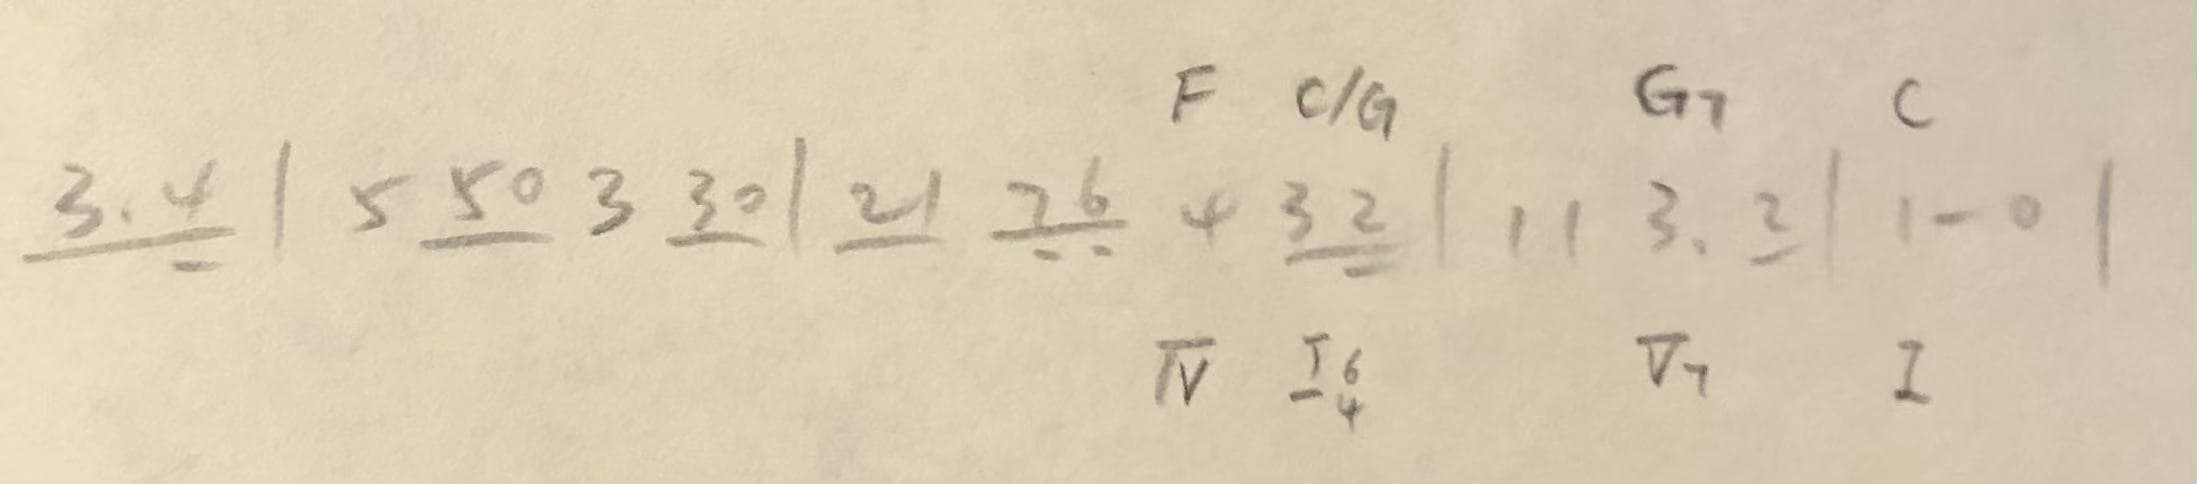 F C/G G7 C
3. 4 | 5 50 3 30 | 21 76 4 32 | 1 1 3. 2 | 1 - 0 |
IV I 6 4 V7 I